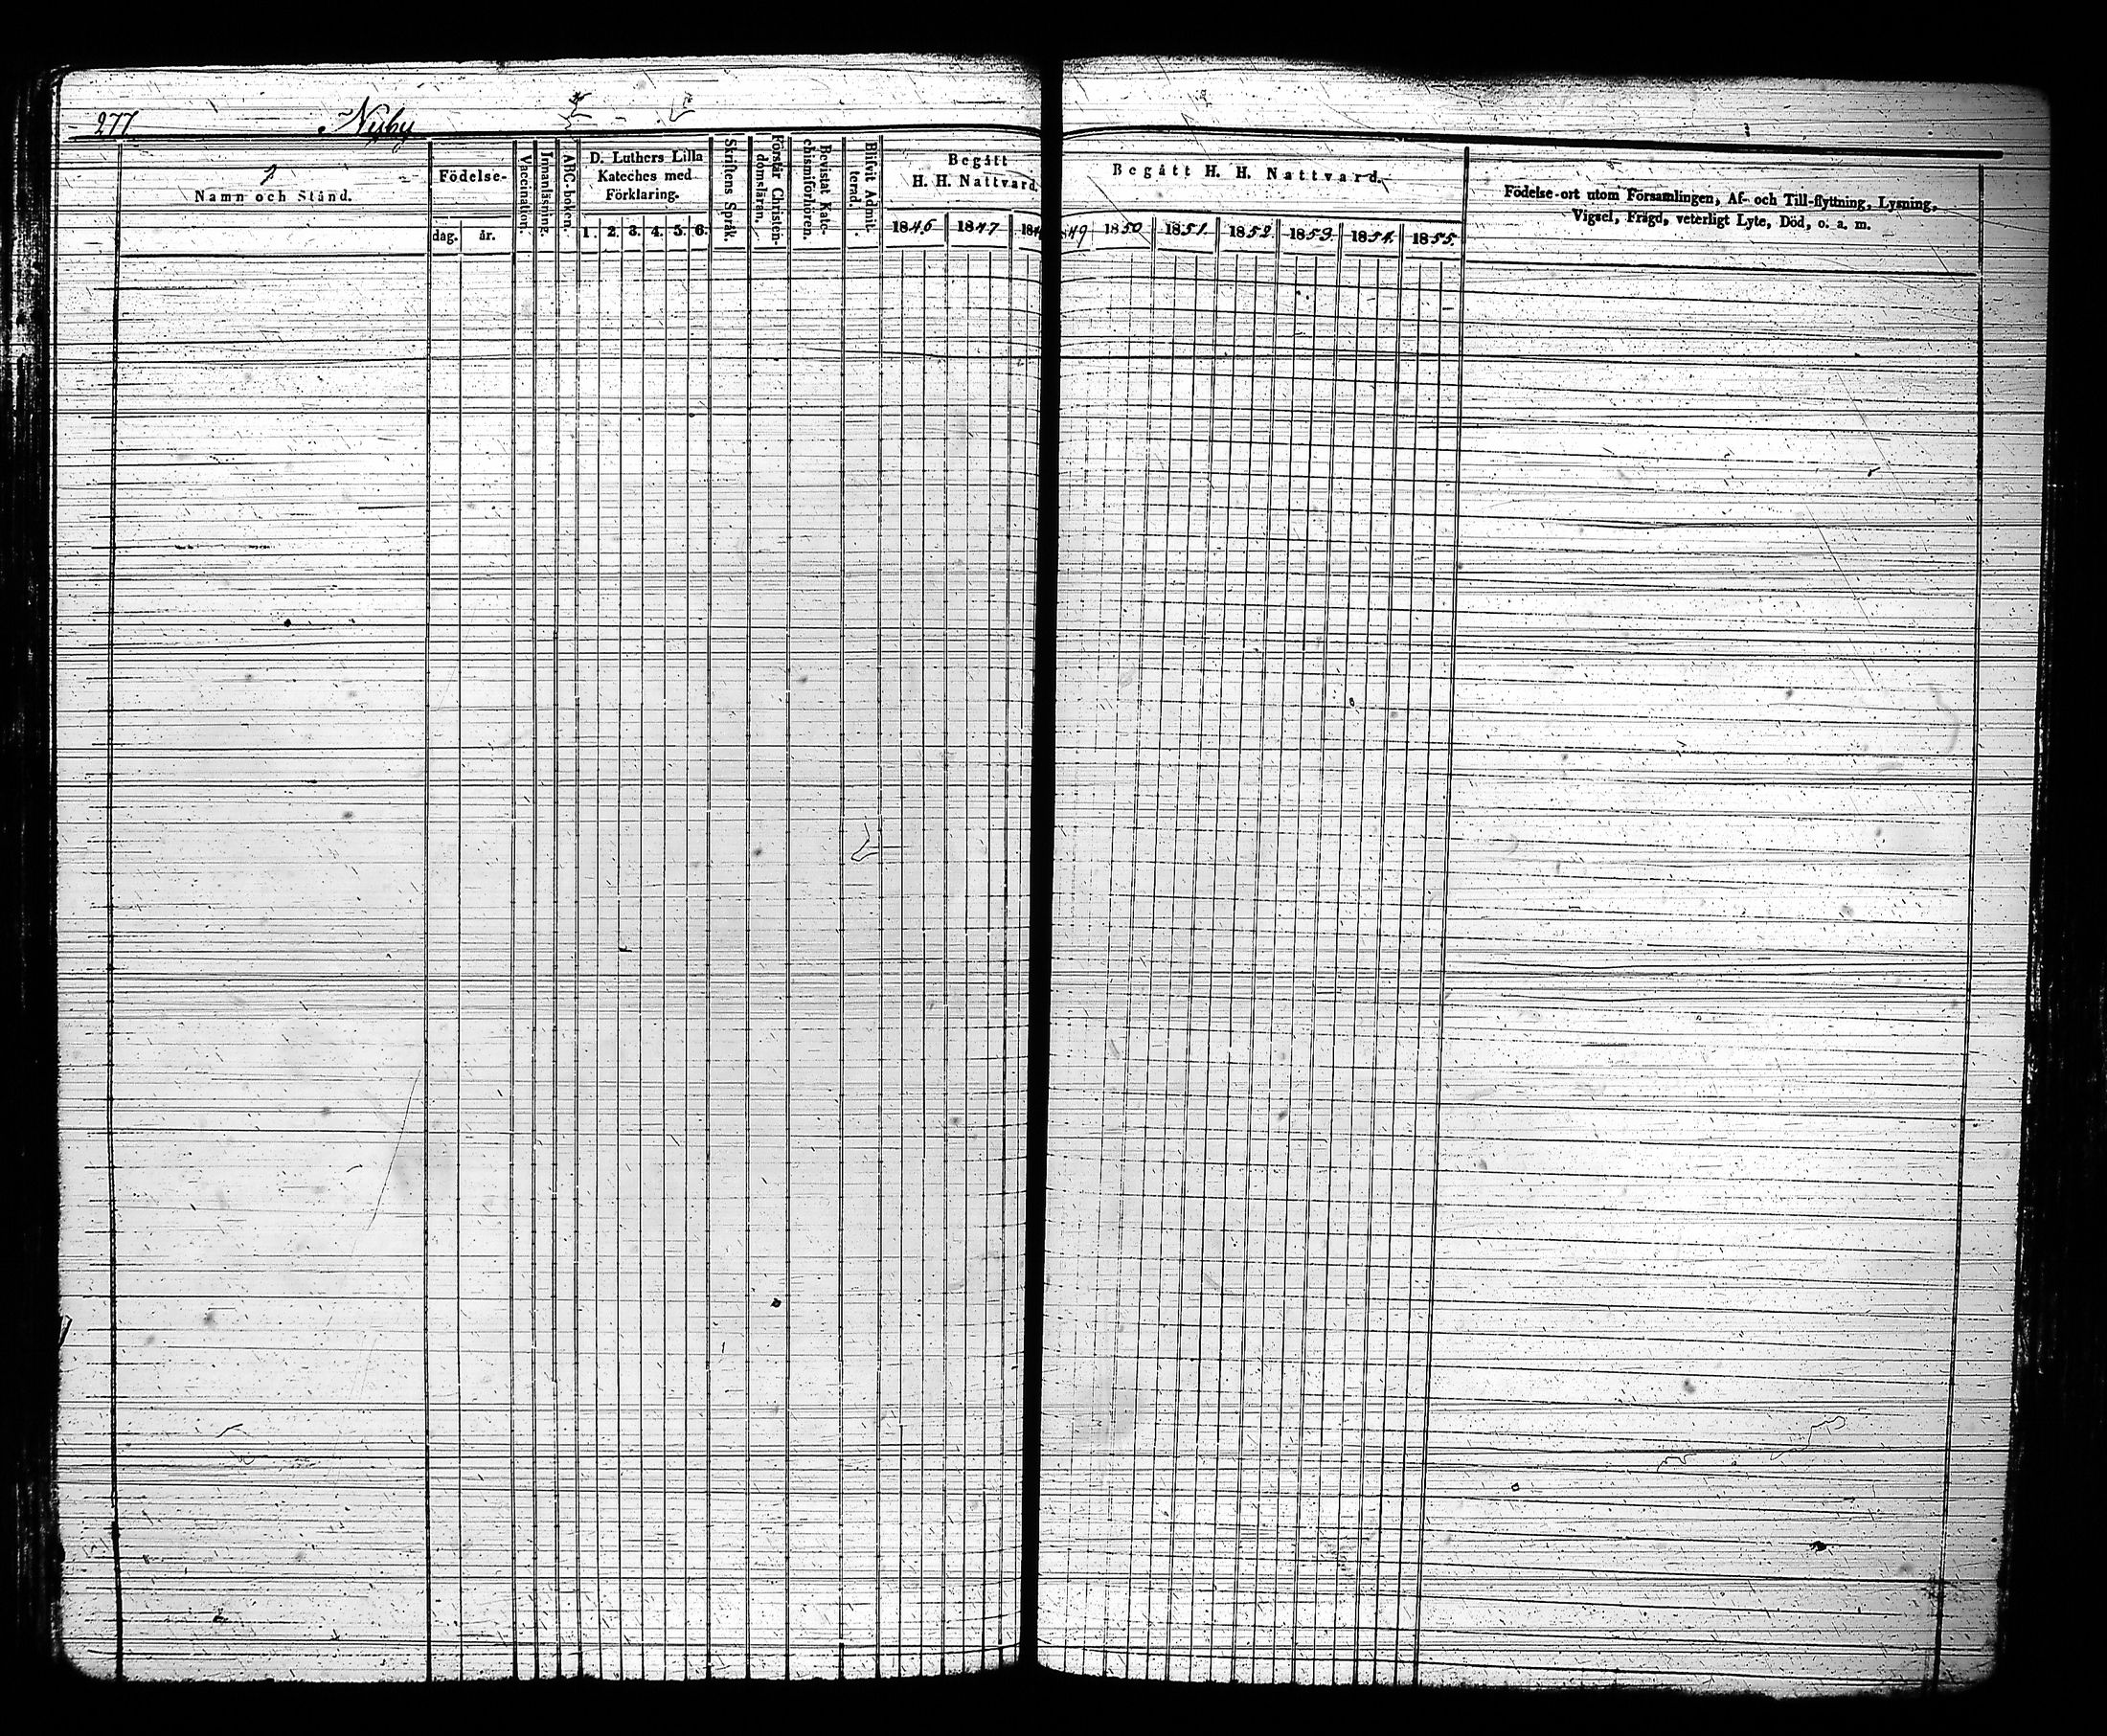 277 Nyby
Namn och Stånd.
Födelse-
dag. år.
Vaccination.
Innanläsning.
ABC-boken.
D. Luthers Lilla
Kateches med
Förklaring.
1. 2. 3. 4. 5. 6.
Skriftens Språk.
Förstår Christen-
domsläran.
Bevistat Kate-
chismiförhören.
Blifvit Admit-
terad.
Begått
H. H. Nattvard.
1846 1847 184
Begått H. H. Nattvard.
849 1850 1851. 1852 1853. 1854. 1855.
Födelse-ort utom Församlingen, Af- och Till-flyttning, Lysning,
Vigsel, Frägd, veterligt Lyte, Död, o. a. m.